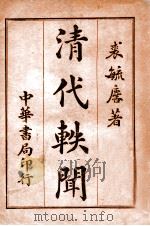 裘毓麐著
清代軼聞
中華書局印行
www.toutu.com